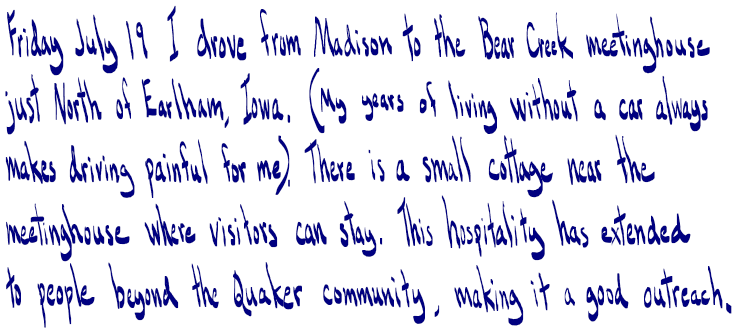 Friday July 19 I drove from Madison to the Bear Creek meetinghouse
just North of Earlham, Iowa. (My years of living without a car always
makes driving painful for me). There is a small cottage near the
meetinghouse where visitors can stay. This hospitality has extended
to people beyond the Quaker community, making it a good outreach.